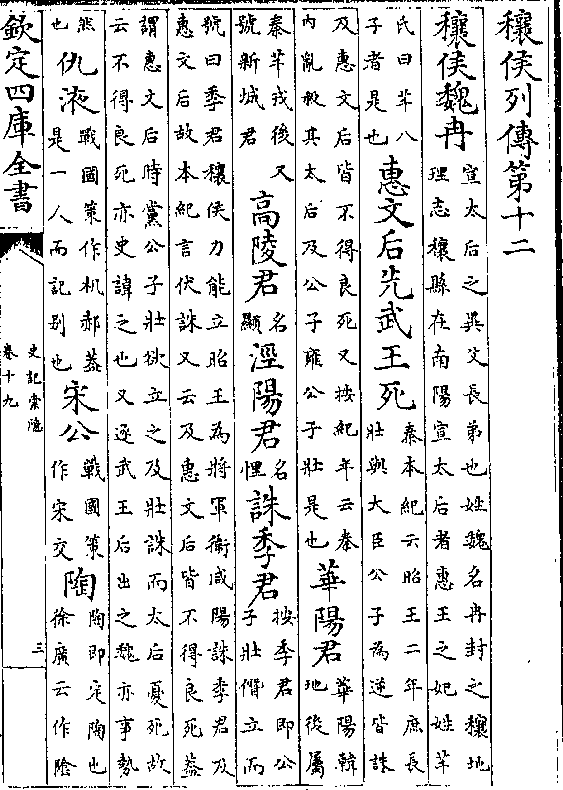 穰侯列傳第十二
穰侯魏冉宣太后之異父長弟也姓魏名冉封之穰地理志穰縣在南陽宣太后者惠王之妃姓芊
氏曰芊八子者是也惠文后先武王死秦本紀云昭王二年庶長壯與大臣公子為逆皆誅
及惠文后皆不得良死又按紀年云秦內亂殺其太后及公子雍公子壯是也華陽君華陽韓地後屬
秦芊戎後又號新城君高陵君名顯涇陽君名悝誅季君按季君即公子壯僭立而
號曰季君穰侯力能立昭王為將軍衛咸陽誅季君及惠文后故本紀言伏誅又云及惠文后皆不得良死葢
謂惠文后時黨公子壯欲立之及壯誅而太后憂死故云不得良死亦史諱之也又逐武王后出之魏亦事勢
然也仇液戰國策作机郝葢是一人而記别也宋公戰國策作宋交陶陶即定陶也徐廣云作隂
欽定四庫全書
史記索隱
卷十九
三